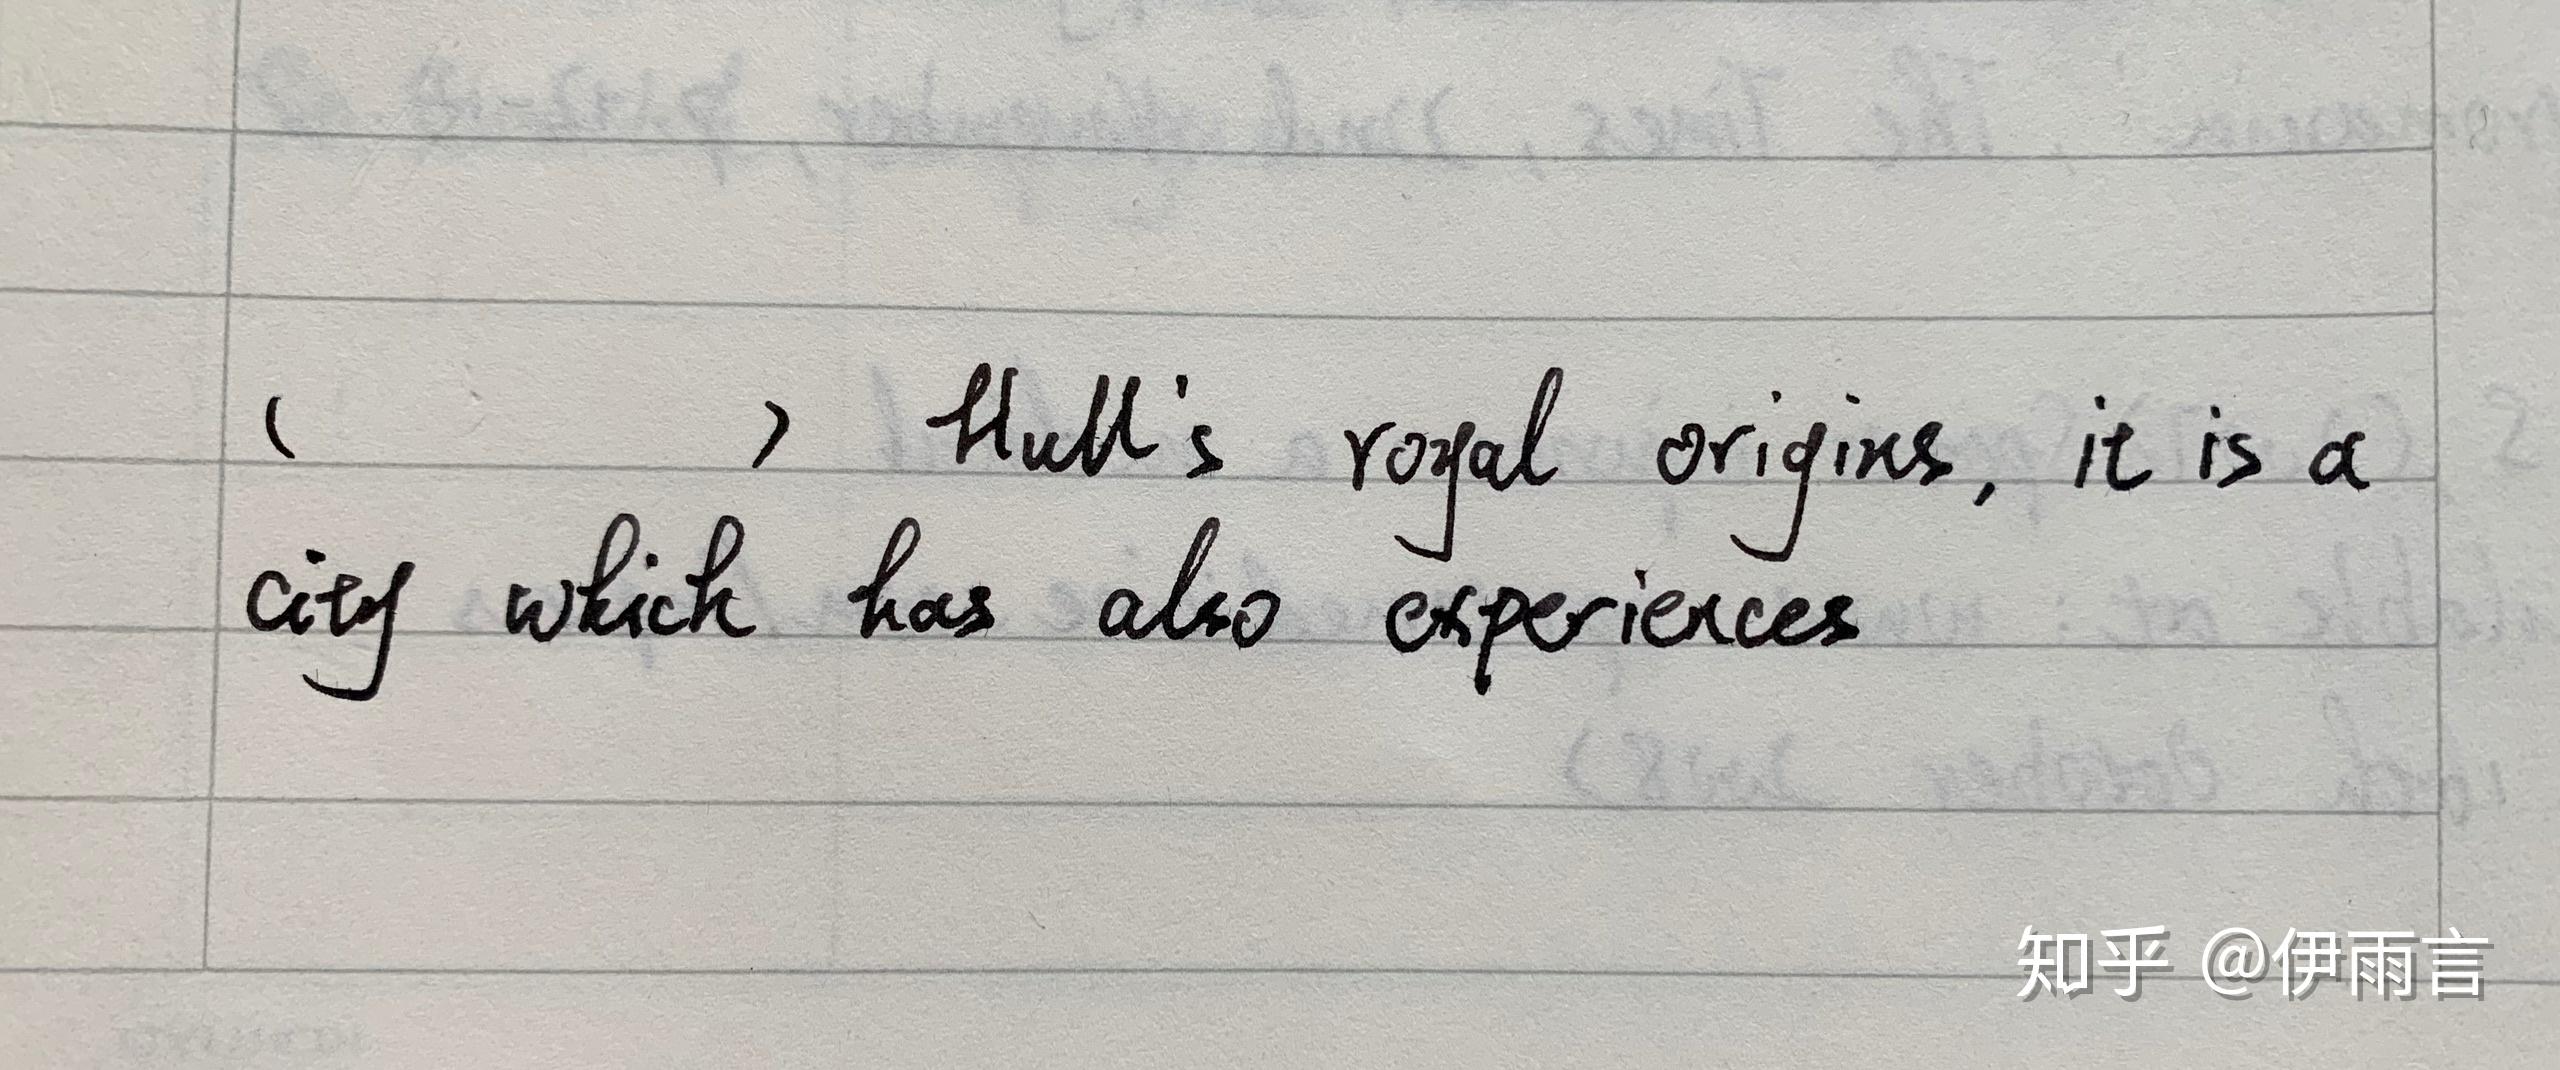 (            ) Hull's royal origins, it is a
city which has also experiences
知乎 @伊雨言